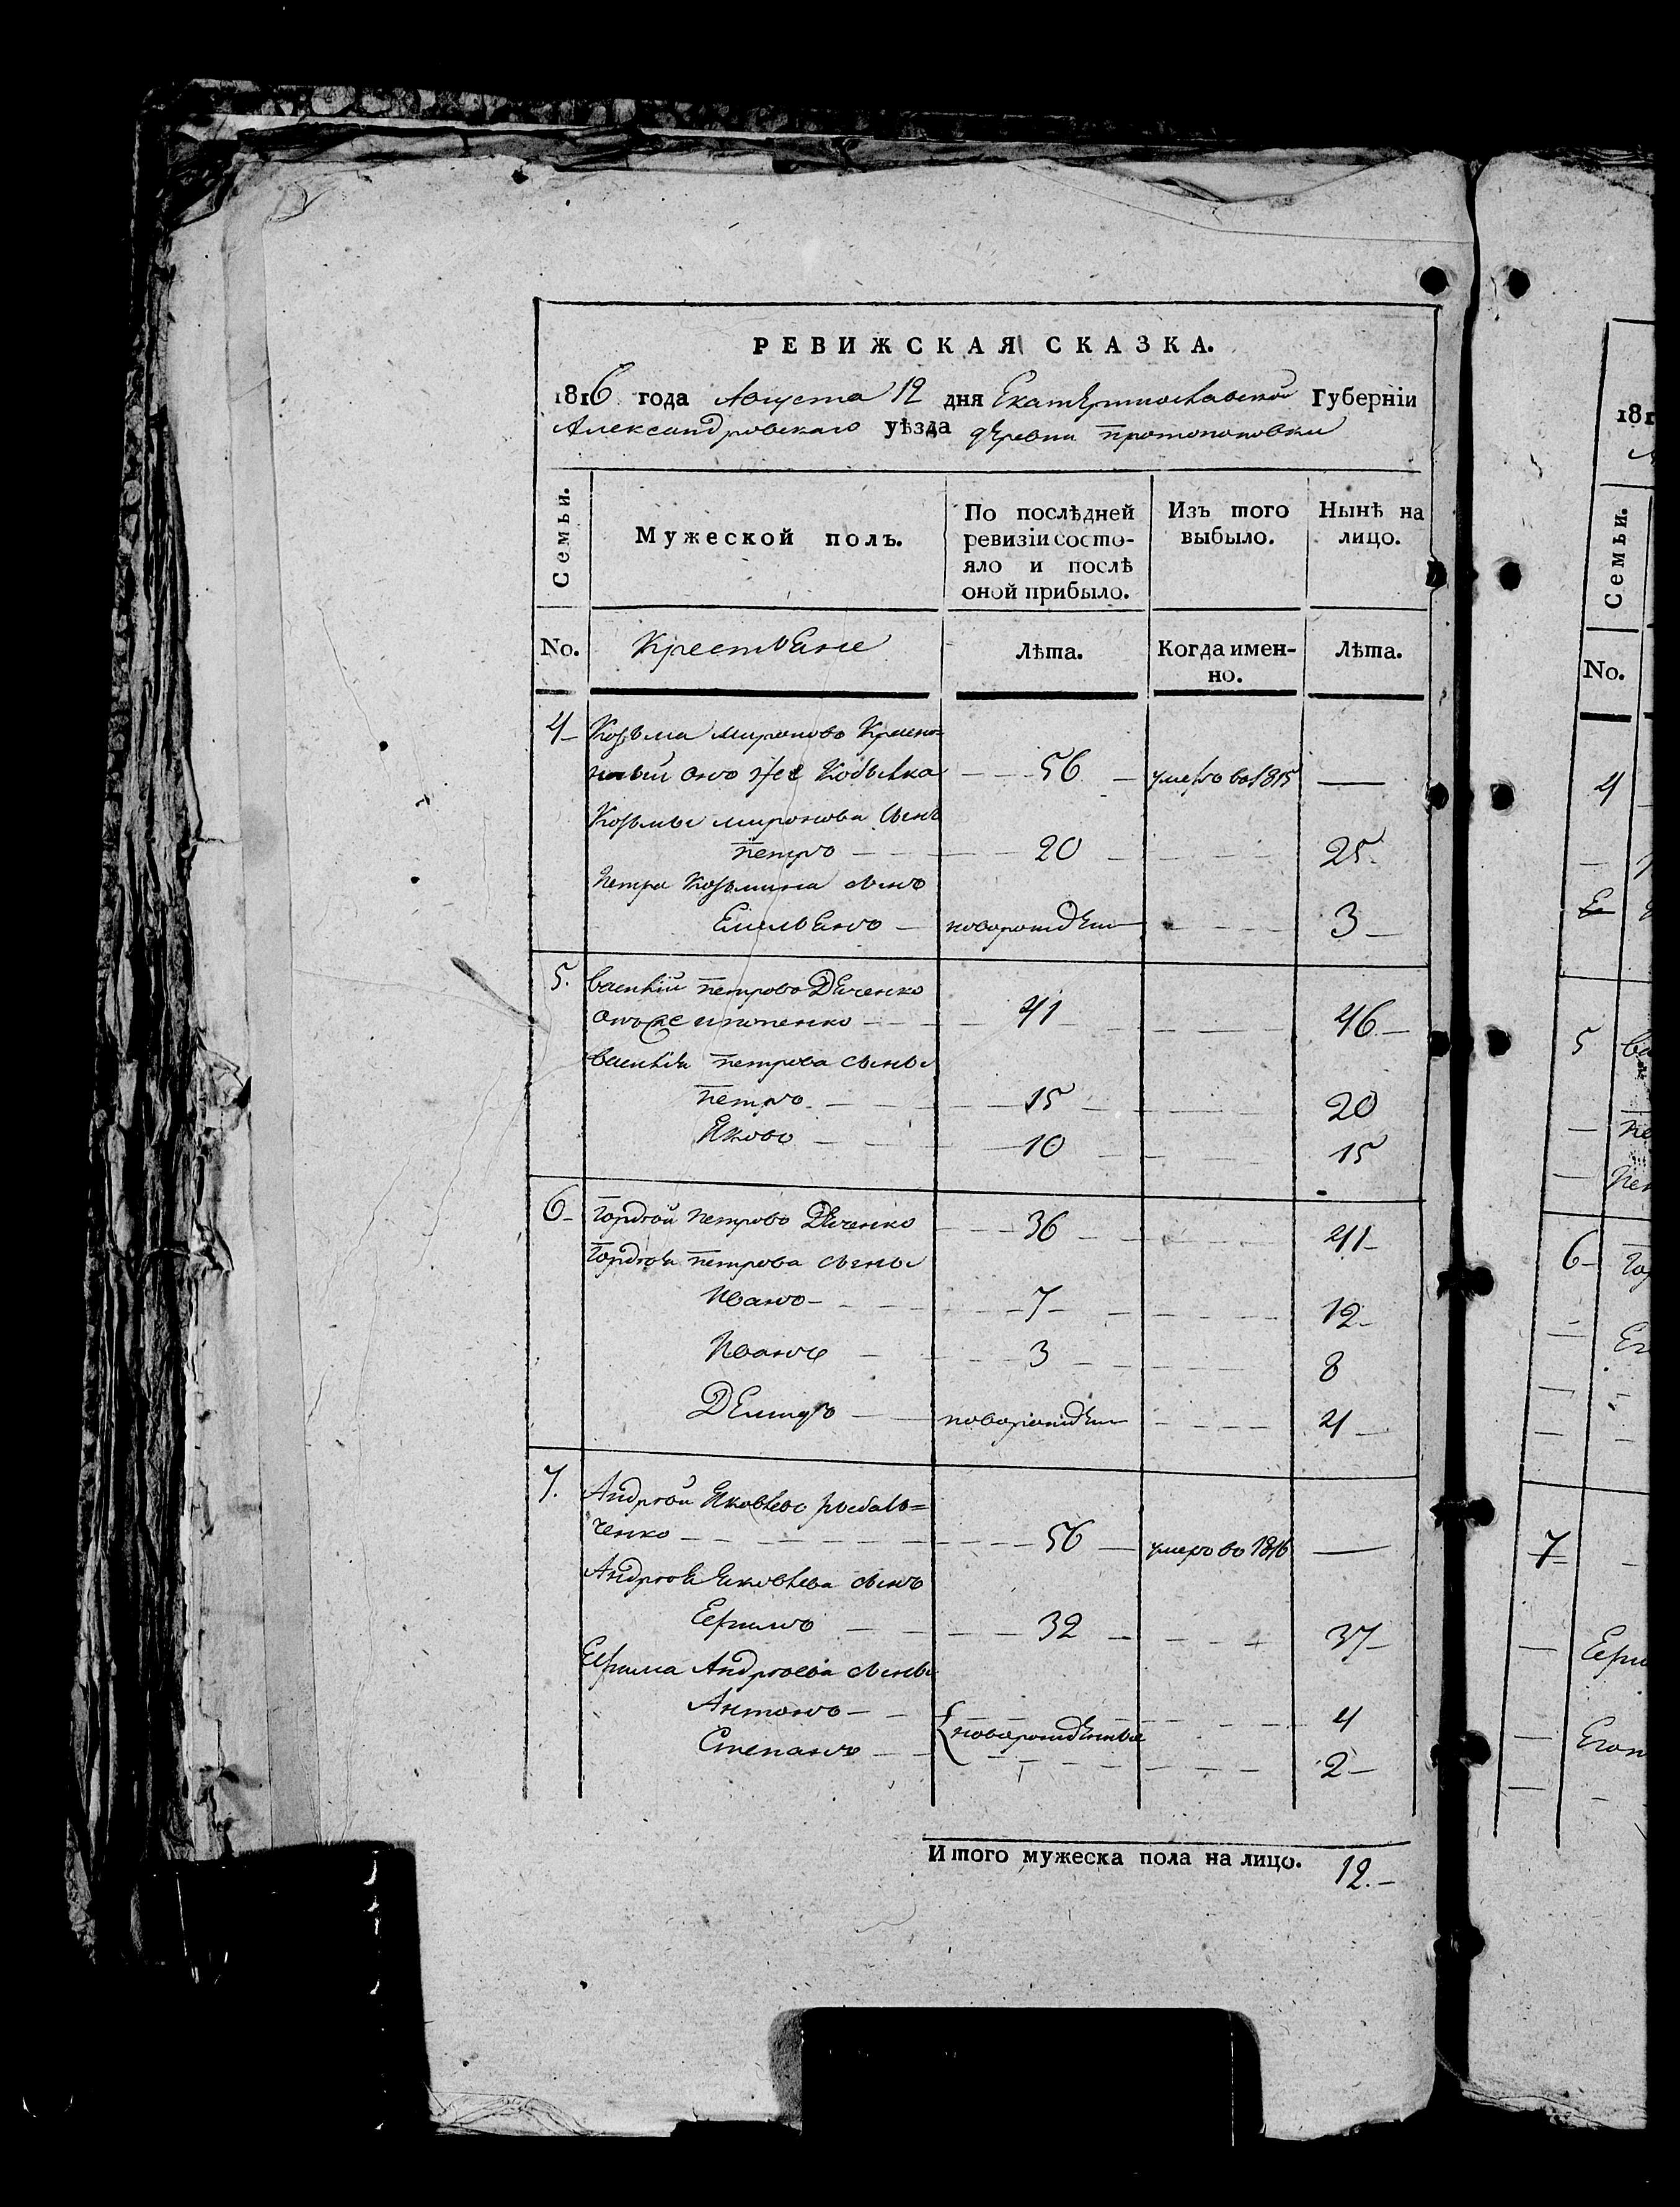 РЕВИЖСКАЯ СКАЗКА.
1816 года Августа 12 дня Екатеринославской Губерніи
Александровскаго уѣзда деревни Протопоповки
Семьи.
Мужеской полъ.
По послѣдней ревизіи состояло и послѣ оной прибыло.
Изъ того выбыло.
Нынѣ на лицо.
No. Крестьяне Лѣта. Когда именно. Лѣта.
4 Козьма Мироновъ
онъ же Кобылка 56 умеръ въ 1815 —
Козьмы Миронова сынъ
Петръ 20 25
Петра Козьмина сынъ
Емельянъ новорожден 3
5. Василій Петровъ Дяченко
онъ же 41 46
Василія Петрова сыны
Петръ 15 20
Яковъ 10 15
6 Гордѣй Петровъ Дяченко 36 41
Гордѣя Петрова сыны
Иванъ 7 12
Иванъ 3 8
Демидъ новорожден 4
7. Андрѣй Яковлевъ Рыбаль=
ченко 56 умеръ въ 1816 —
Андрѣя Яковлева сынъ
Ефимъ 32 37
Ефима Андрѣева сыны
Антонъ новорожденные 4
Степанъ 2
Итого мужеска пола на лицо. 12.
181
Семьи.
No.
4
5
6
7